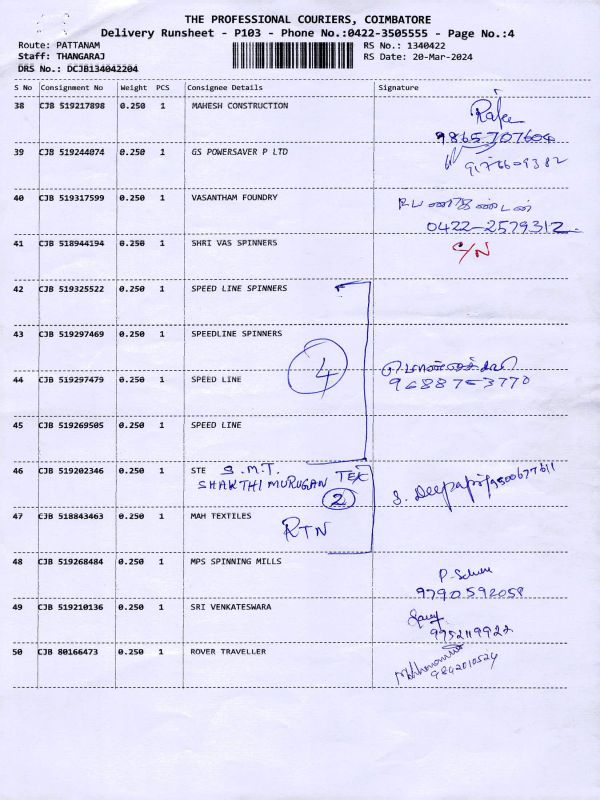 THE PROFESSIONAL COURIERS, COIMBATORE
Delivery Runsheet - P103 - Phone No.:0422-3505555 - Page No.:4
Route: PATTANAM
RS No.: 1340422
Staff: THANGARAJ
RS Date: 20-Mar-2024
DRS No.: DCJB134042204
S No Consignment No Weight PCS Consignee Details Signature
38 CJB 519217898 0.250 1 MAHESH CONSTRUCTION
9865707604
39 CJB 519244074 0.250 1 GS POWERSAVER P LTD
40 CJB 519317599 0.250 1 VASANTHAM FOUNDRY
0422-2579312
41 CJB 518944194 0.250 1 SHRI VAS SPINNERS C/N
42 CJB 519325522 0.250 1 SPEED LINE SPINNERS
43 CJB 519297469 0.250 1 SPEEDLINE SPINNERS
4
44 CJB 519297479 0.250 1 SPEED LINE
9688753770
45 CJB 519269505 0.250 1 SPEED LINE
46 CJB 519202346 0.250 1 STE S.M.T.
SHAKTHI MURUGAN TEX
2
S. Deepa 9500677611
47 CJB 518843463 0.250 1 MAH TEXTILES
RTN
48 CJB 519268484 0.250 1 MPS SPINNING MILLS
9790592058
49 CJB 519210136 0.250 1 SRI VENKATESWARA
9952119922
50 CJB 80166473 0.250 1 ROVER TRAVELLER
9842010524